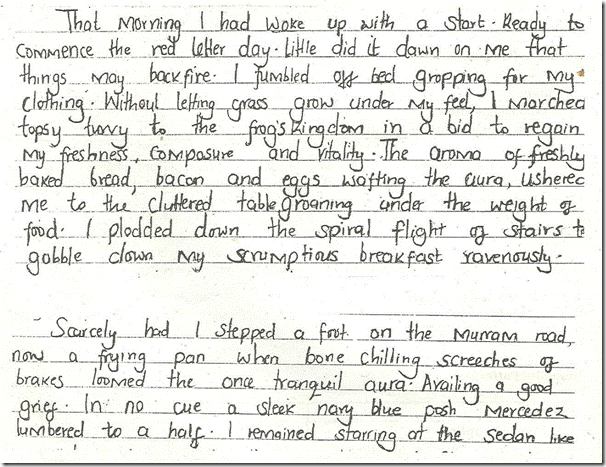 That Morning I had woke up with a start. Ready to
commence the red letter day. Little did it dawn on me that
things may backfire. I fumbled off bed gropping for my
clothing. Without letting grass grow under my feel, I marched
topsy turvy to the frog's kingdom in a bid to regain
my freshness, composure and vitality. The aroma of freshly
baked bread, bacon and eggs wafting the aura, usherec
me to the cluttered table groaning under the weight of
food. I plodded down the spiral flight of stairs to
gobble down my scrumptious breakfast ravenously.
Scarcely had I stepped a foot on the murram road,
now a frying pan when bone chilling screeches of
brakes loomed the once tranquil aura. Availing a good
grief. In no cue a sleek navy blue posh Mercedez
lumbered to a half. I remained starring at the sedan like